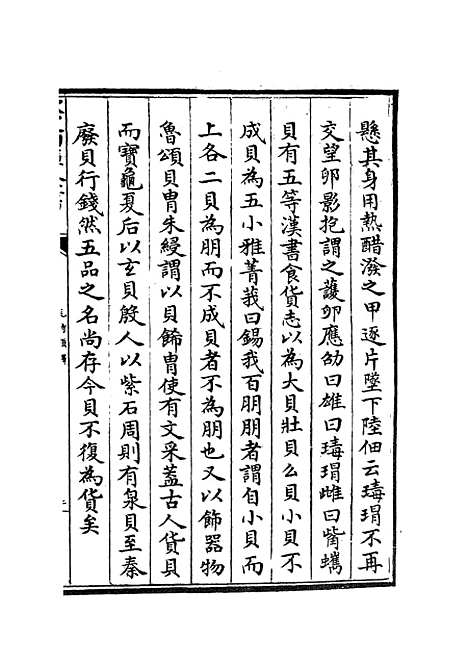 懸其身用熱醋潑之甲逐片墜下陸佃云瑇瑁不再
交望卵影抱謂之護卵應劭曰雄曰瑇瑁雌曰觜蠵
貝有五等漢書食貨志以為大貝壯貝么貝小貝不
成貝為五小雅菁莪曰錫我百朋朋者謂自小貝而
上各二貝為朋而不成貝者不為朋也又以飾器物
魯頌貝胄朱綅謂以貝餙胄使有文采蓋古人貨貝
而寶龜夏后以玄貝殷人以紫石周則有泉貝至秦
廢貝行錢然五品之名尚存今貝不復為貨矣